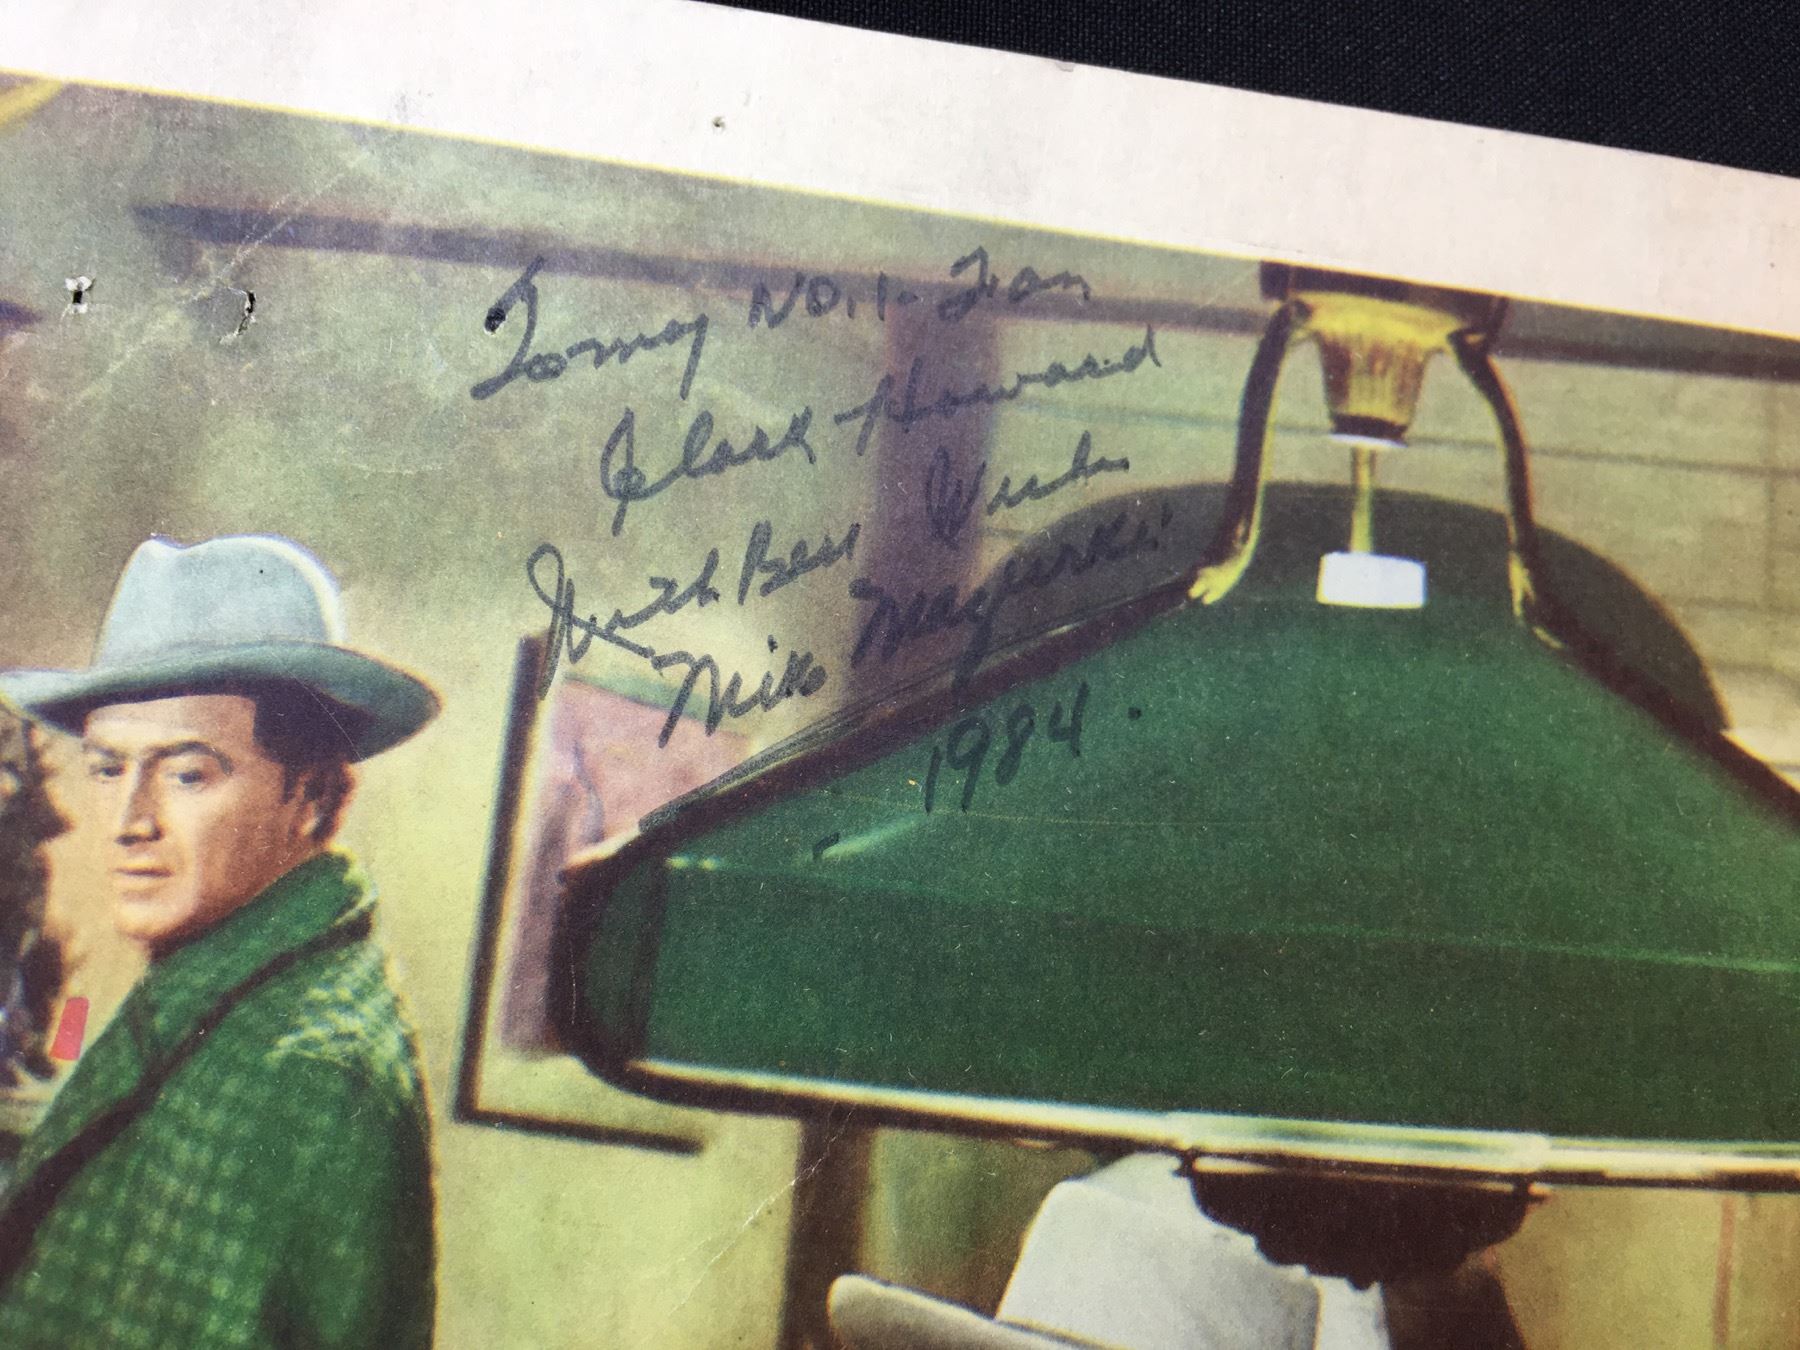 To my NO.1-Fan
Clark Howard
With Best Wishes
Mike Mazurki
1984.